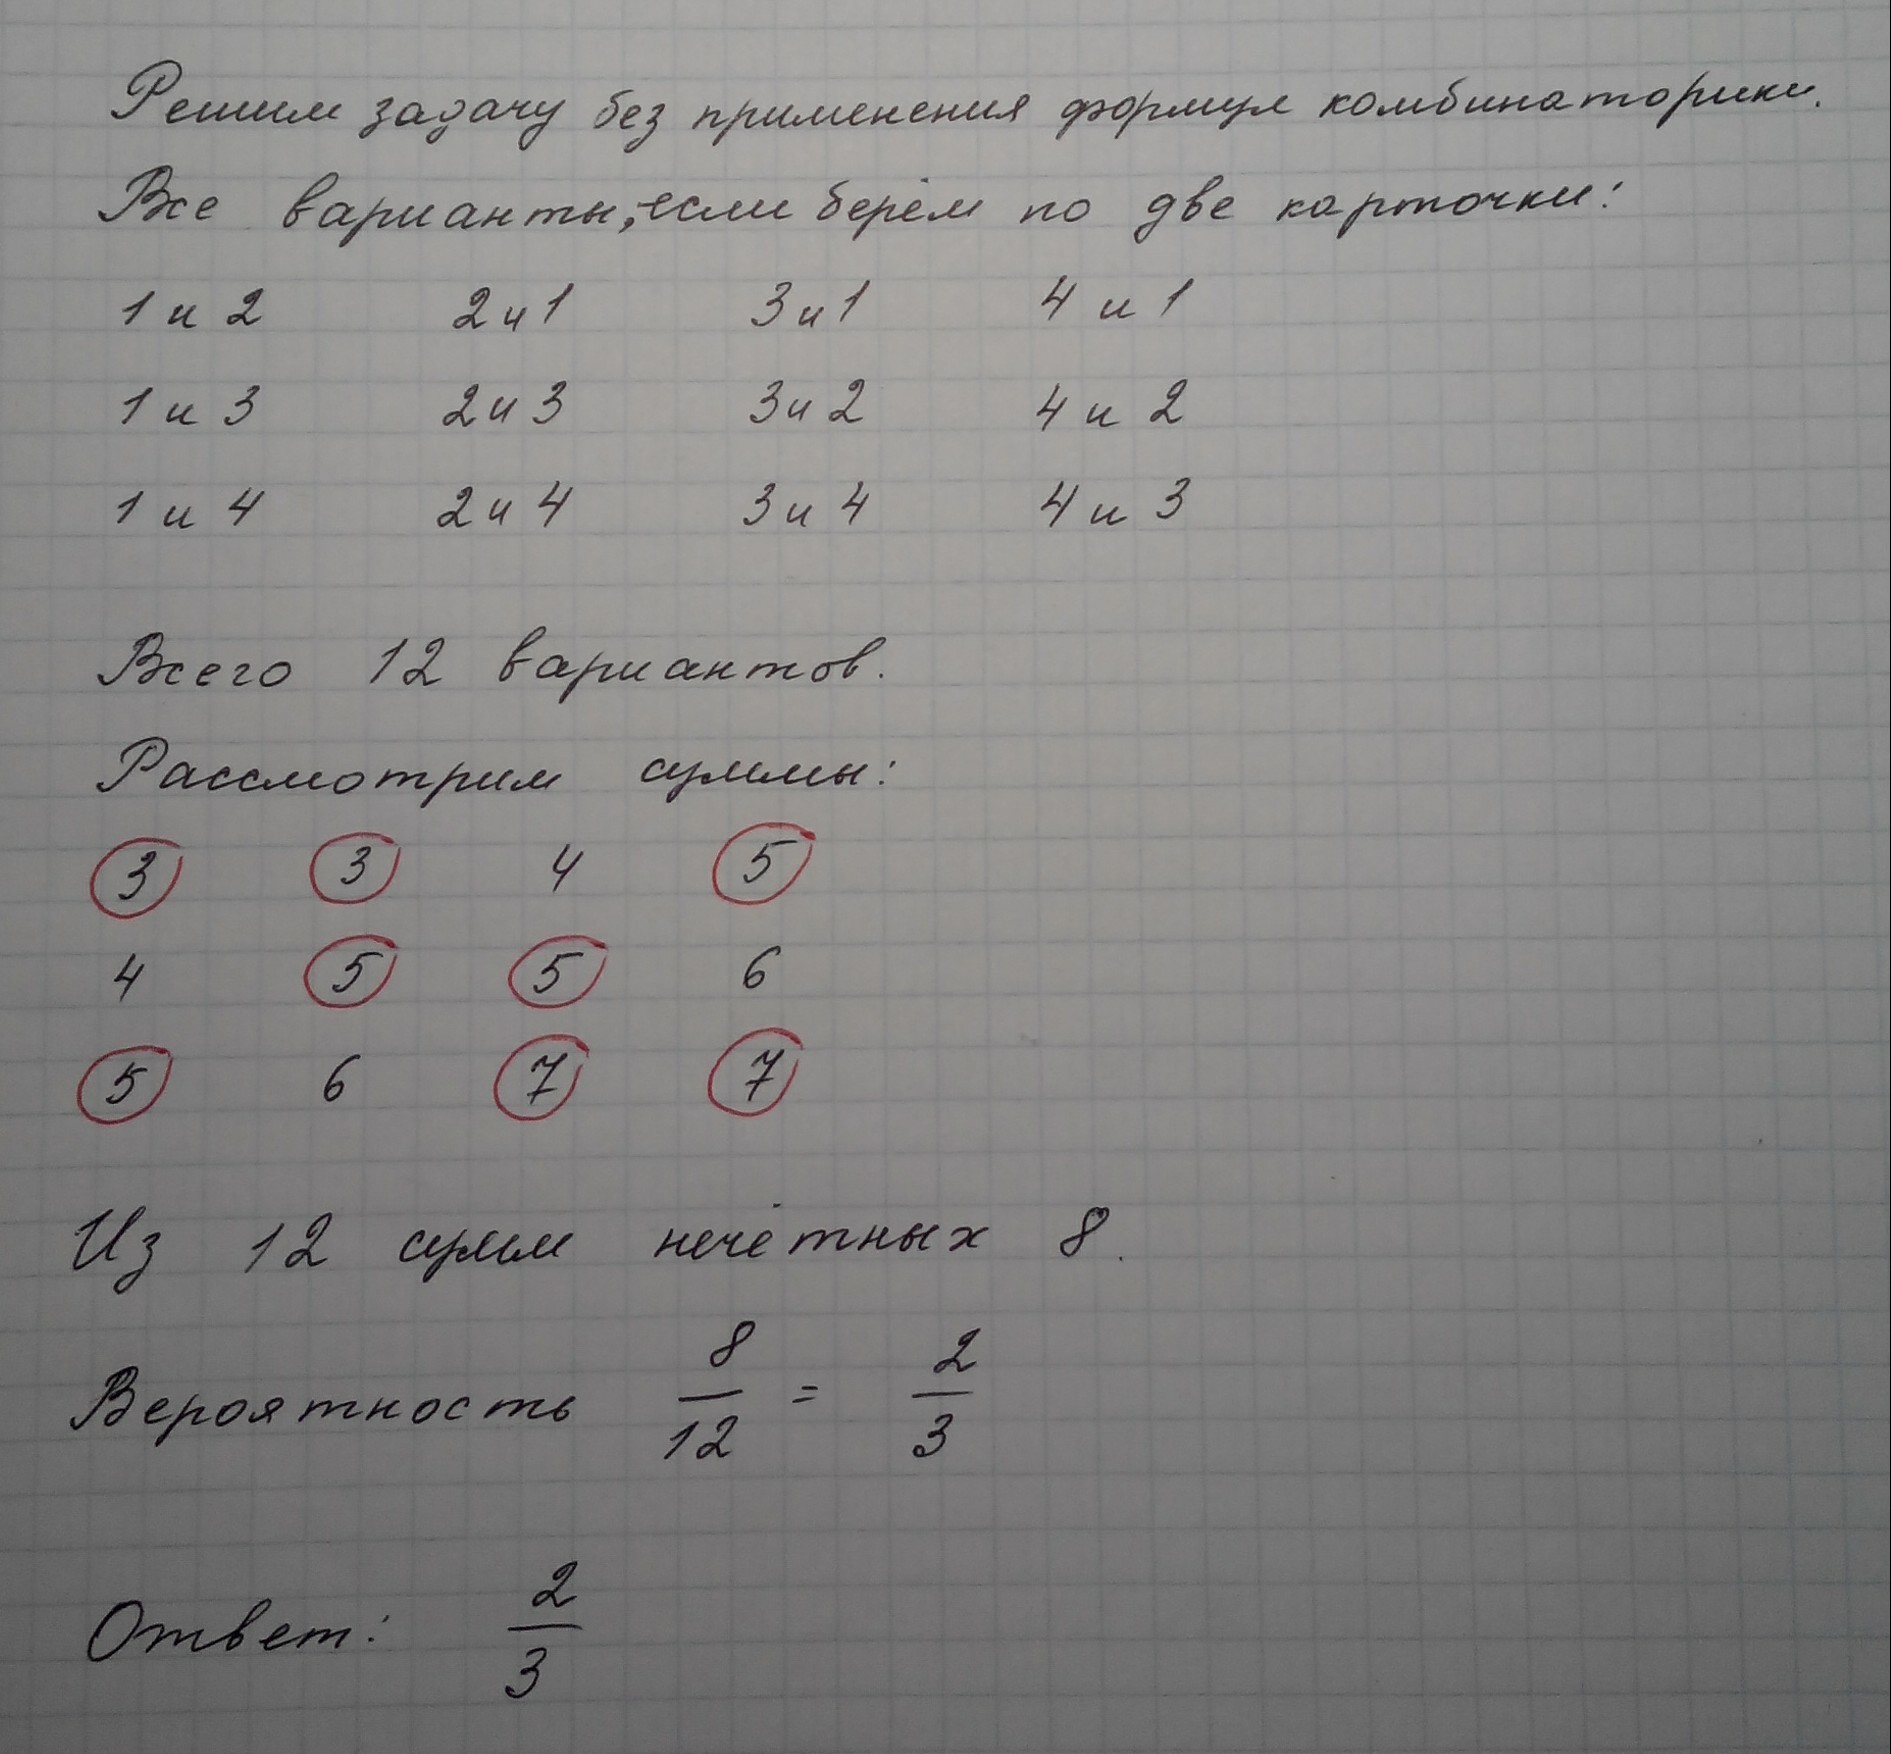 Решим задачу без применения формул комбинаторики.
Все варианты, если берём по две карточки:
1 и 2 2 и 1 3 и 1 4 и 1
1 и 3 2 и 3 3 и 2 4 и 2
1 и 4 2 и 4 3 и 4 4 и 3
Всего 12 вариантов.
Рассмотрим суммы:
3 3 4 5
4 5 5 6
5 6 7 7
Из 12 сумм нечётных 8.
Вероятность 8/12 = 2/3
Ответ: 2/3